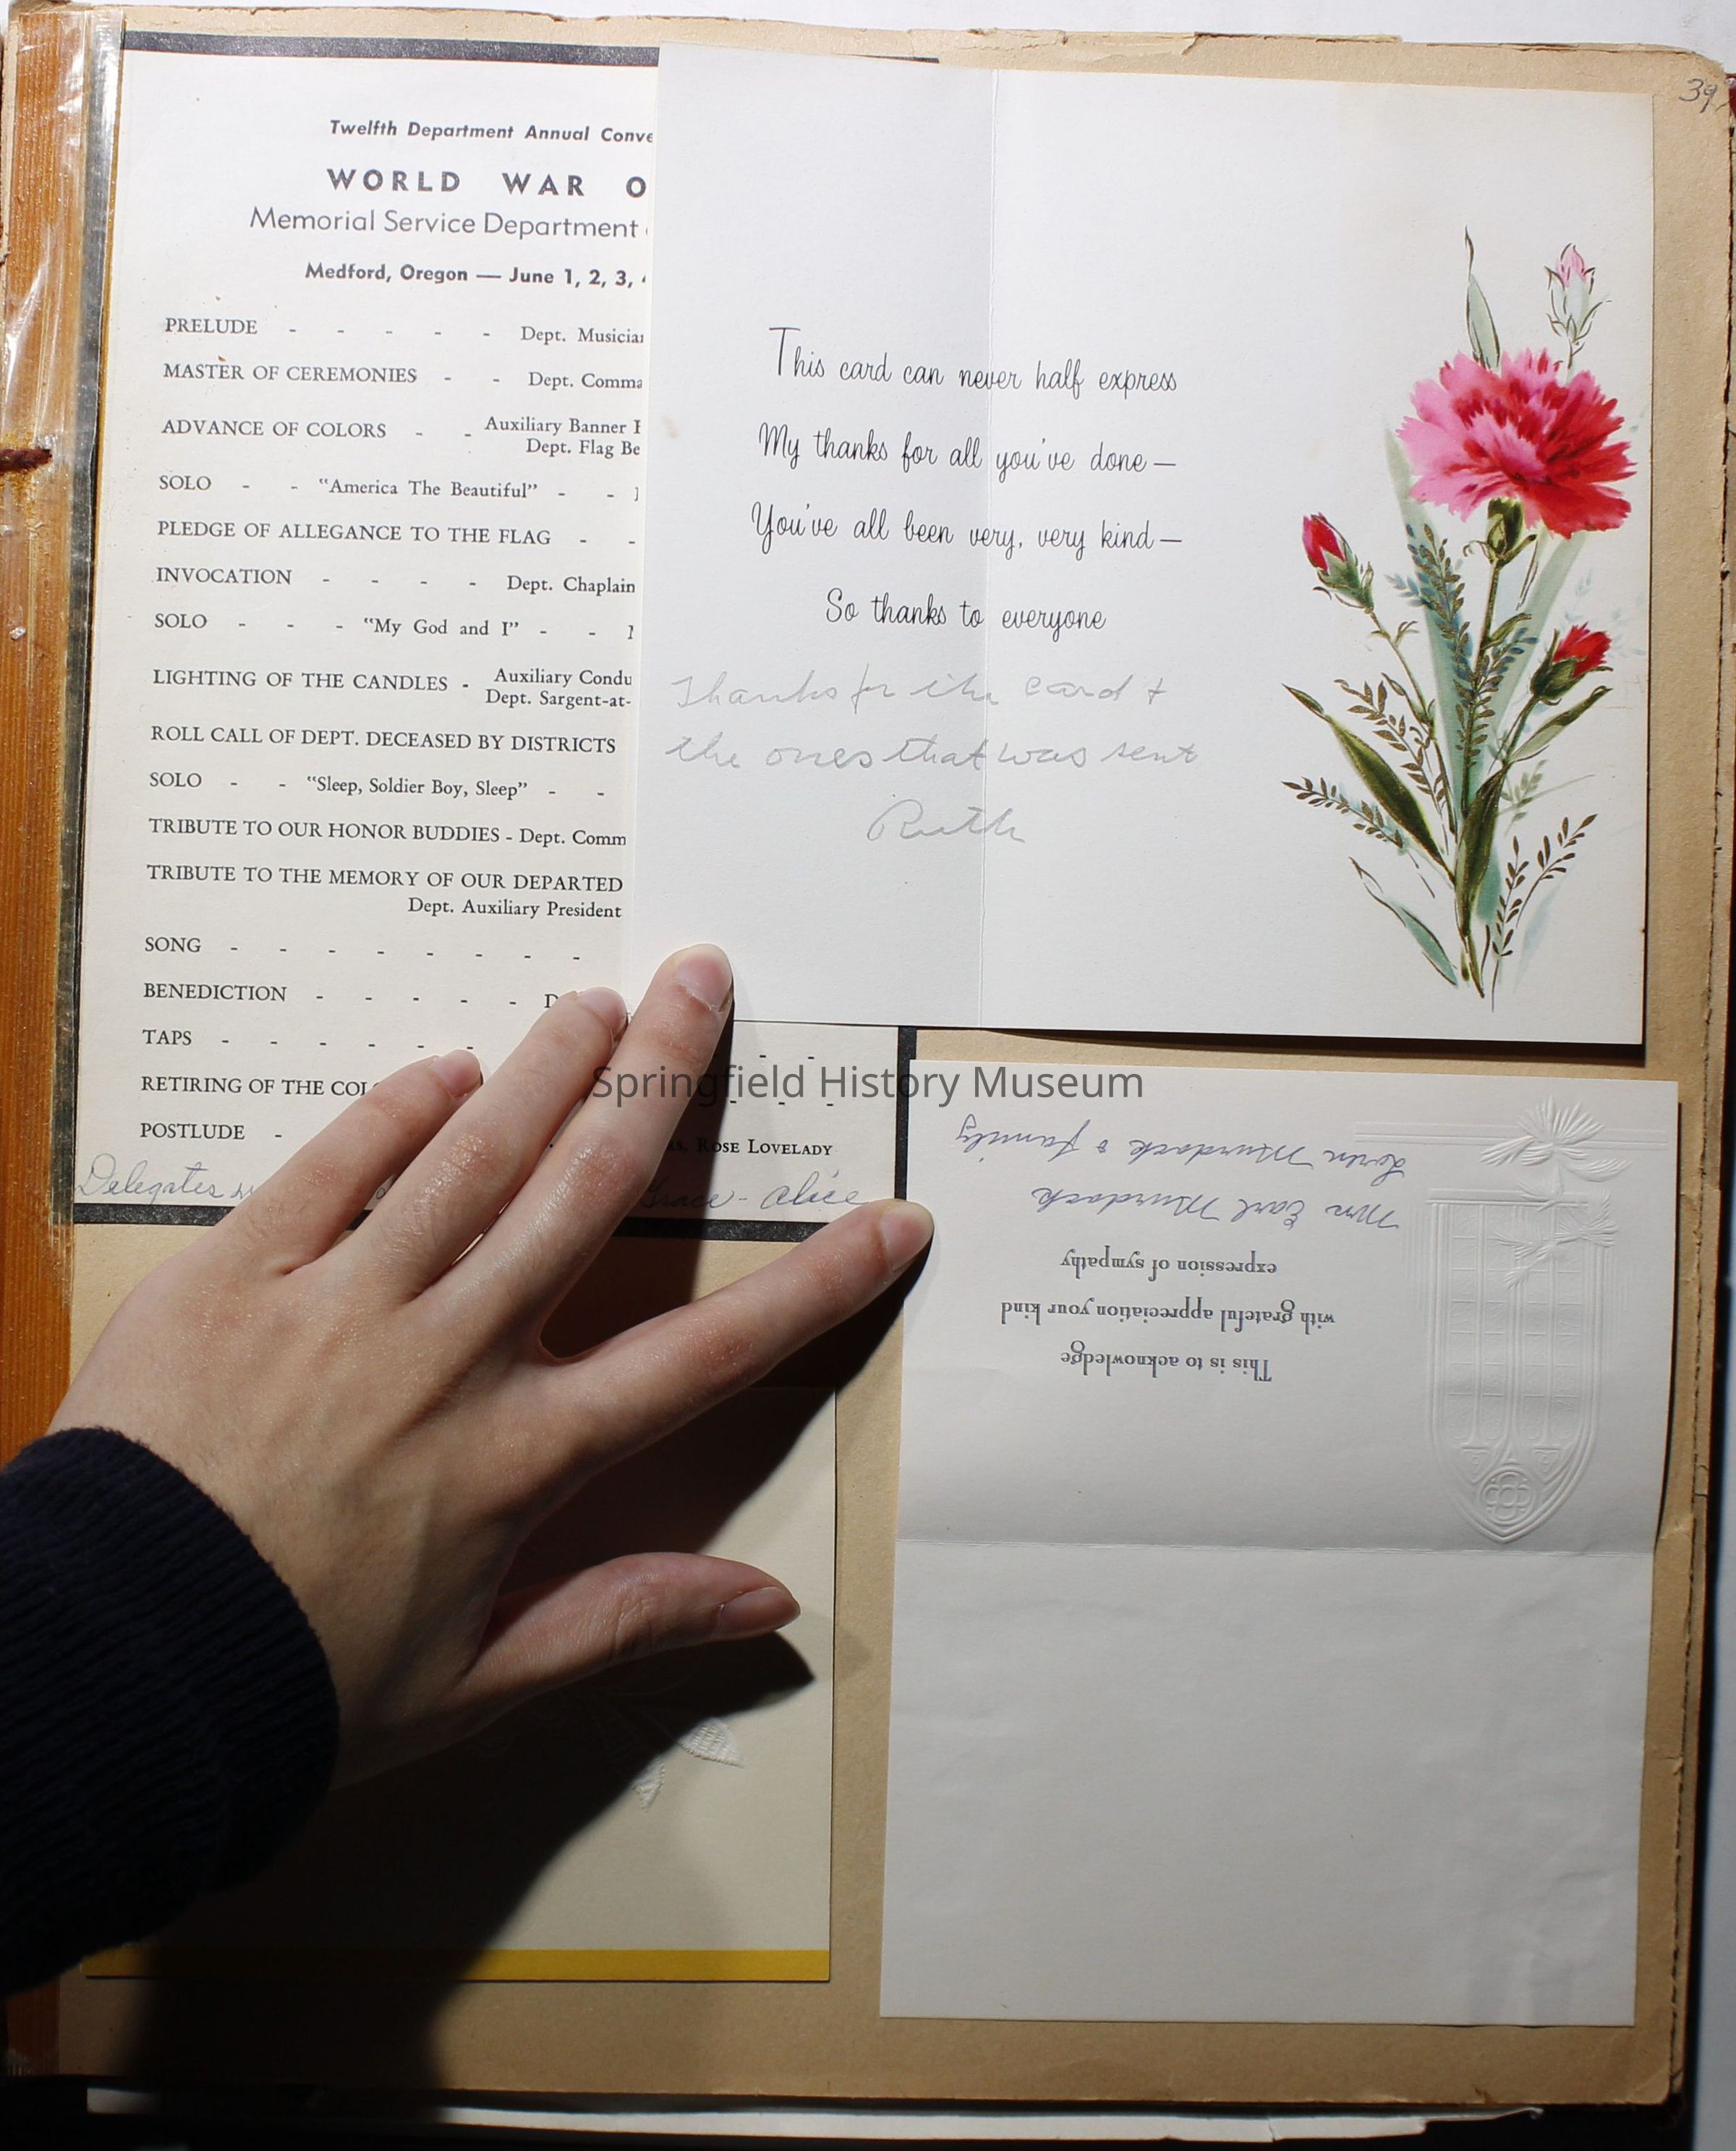 39
Twelfth Department Annual Conve
WORLD WAR O
Memorial Service Department
Medford, Oregon — June 1, 2, 3,
PRELUDE - - - - - Dept. Musician
MASTER OF CEREMONIES - - Dept. Comma
ADVANCE OF COLORS - - Auxiliary Banner
Dept. Flag Be
SOLO - - "America The Beautiful" - -
PLEDGE OF ALLEGANCE TO THE FLAG - -
INVOCATION - - - - Dept. Chaplain
SOLO - - - "My God and I" - -
LIGHTING OF THE CANDLES - Auxiliary Condu
Dept. Sargent-at-
ROLL CALL OF DEPT. DECEASED BY DISTRICTS
SOLO - - "Sleep, Soldier Boy, Sleep" - -
TRIBUTE TO OUR HONOR BUDDIES - Dept. Comm
TRIBUTE TO THE MEMORY OF OUR DEPARTED
Dept. Auxiliary President
SONG - - - - - - - -
BENEDICTION - - - - - D
TAPS - - - - - -
RETIRING OF THE COLO
POSTLUDE - Rose Lovelady
Delegates Grace - Alice
This card can never half express
My thanks for all you've done —
You've all been very, very kind —
So thanks to everyone
Thanks for the card +
the ones that was sent
Ruth
Springfield History Museum
This is to acknowledge
with grateful appreciation your kind
expression of sympathy
Mrs Earl Murdock
Loren Murdock & family